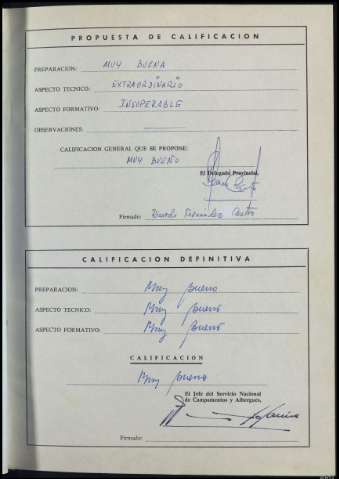 PROPUESTA DE CALIFICACION
PREPARACION: MUY BUENA
ASPECTO TECNICO: EXTRAORDINARIO
ASPECTO FORMATIVO: INSUPERABLE
OBSERVACIONES:
CALIFICACION GENERAL QUE SE PROPONE:
MUY BUENO
El Delegado Provincial,
Firmado:
CALIFICACION DEFINITIVA
PREPARACION: Muy bueno
ASPECTO TECNICO: Muy bueno
ASPECTO FORMATIVO: Muy bueno
CALIFICACION
Muy bueno
El Jefe del Servicio Nacional
de Campamentos y Albergues,
Firmado: